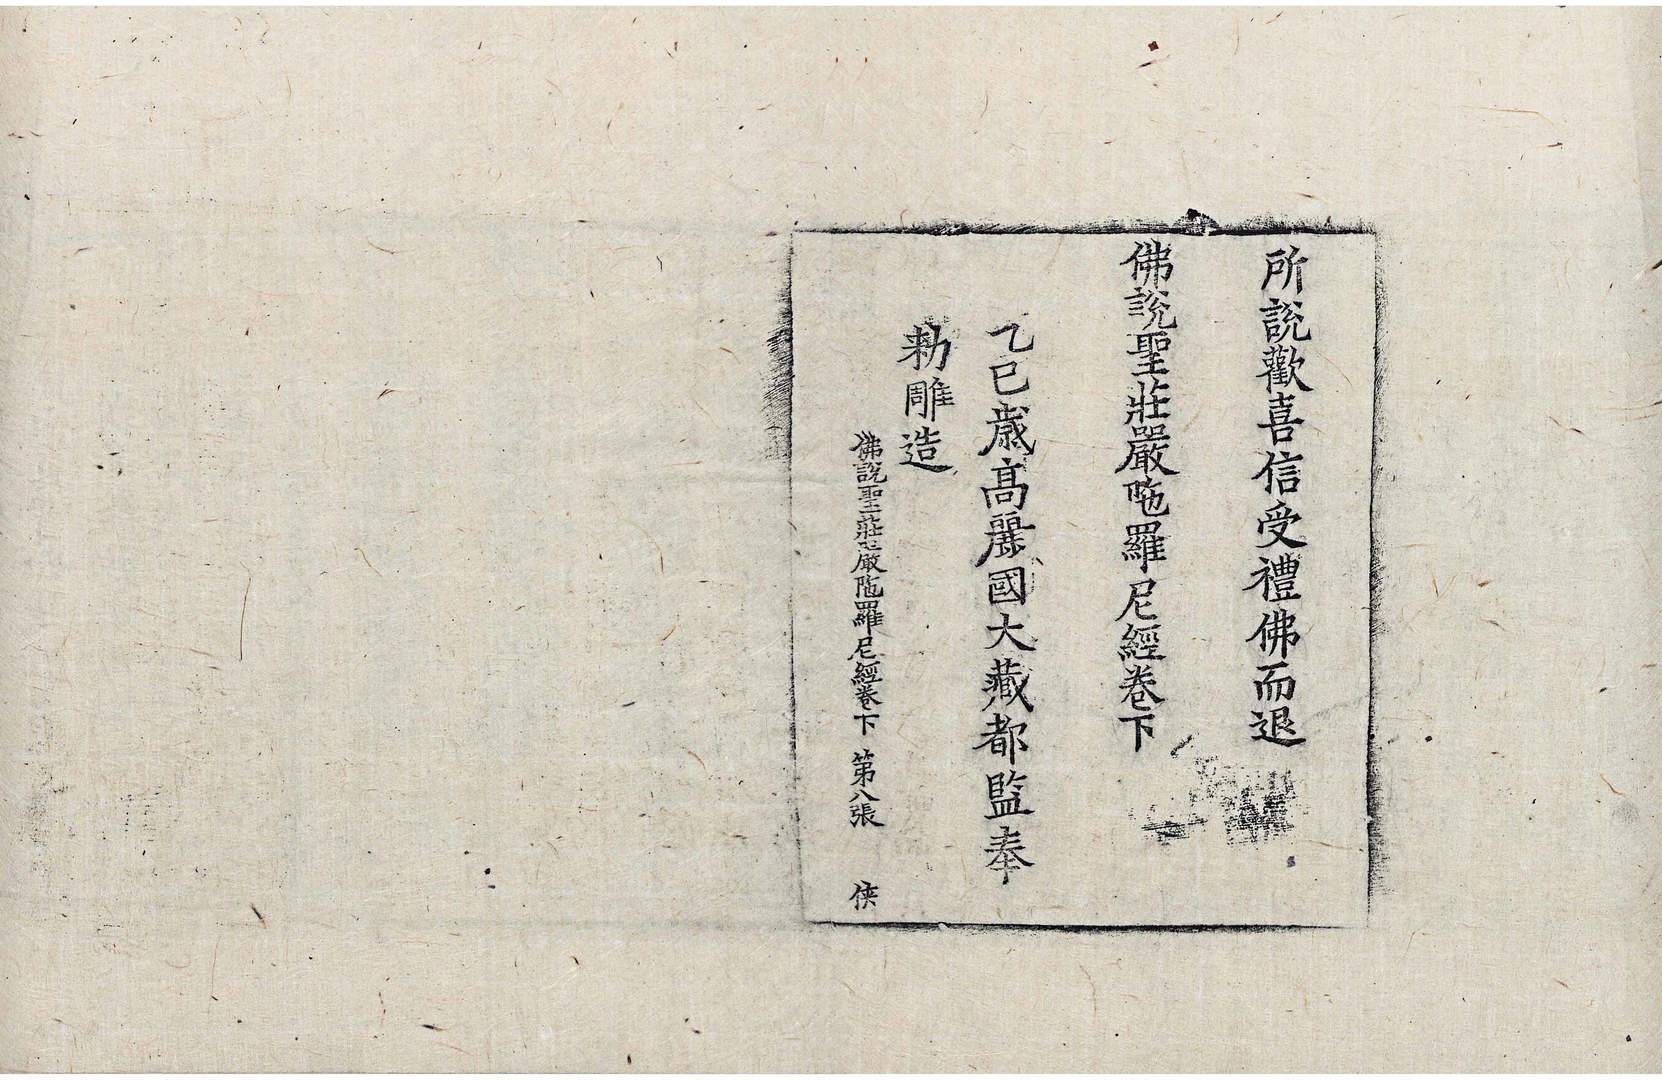 所說歡喜信受禮佛而退
佛說聖莊嚴陁羅尼經卷下
乙巳歲高麗國大藏都監奉
勑雕造
佛說聖莊嚴陁羅尼經卷下 第八張 俠